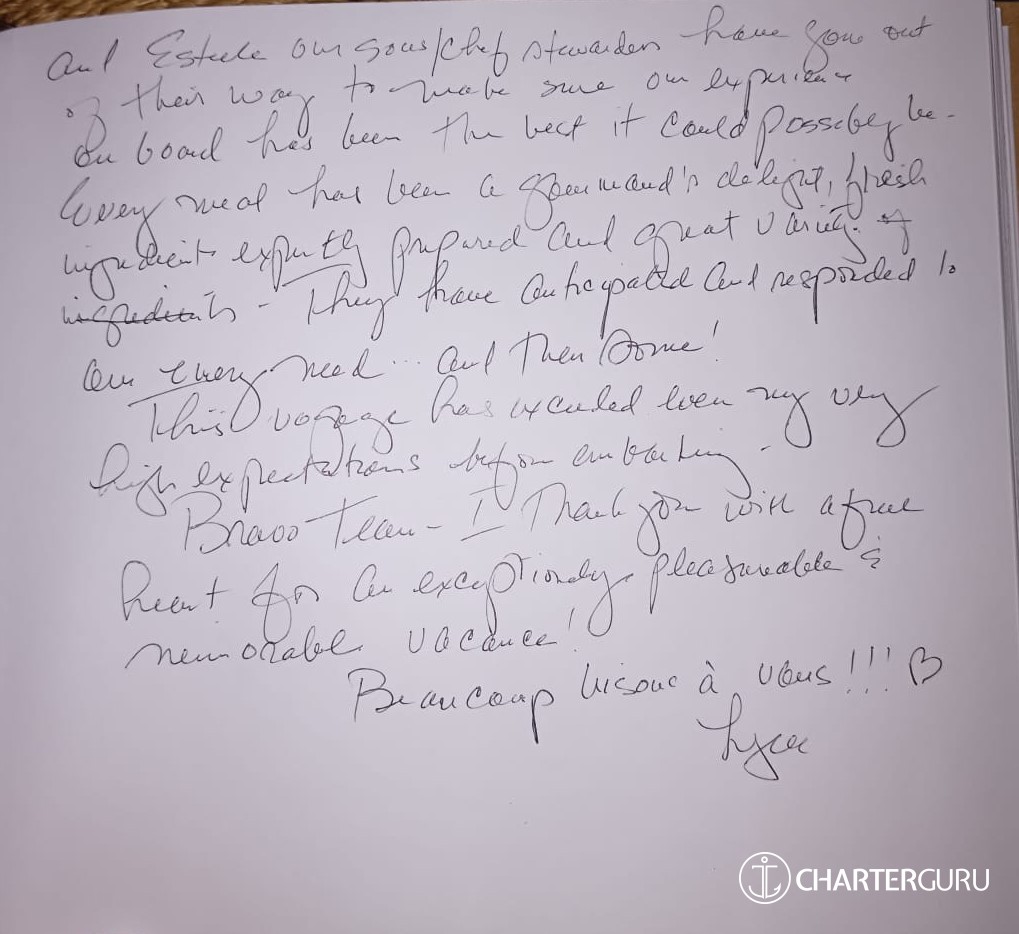 and Estelle our sous/chef stewardess have gone out
of their way to make sure our experience
on board has been the best it could possibly be.
Every meal has been a gourmand's delight, fresh
ingredients expertly prepared and great variety of
ingredients - They have anticipated and responded to
our every need... and then some!
This voyage has exceeded even my very
high expectations before embarking.
Bravo Team - I Thank you with a
heart for an exceptionally pleasurable &
memorable vacance!
Beaucoup bisous à vous!!!
CHARTERGURU